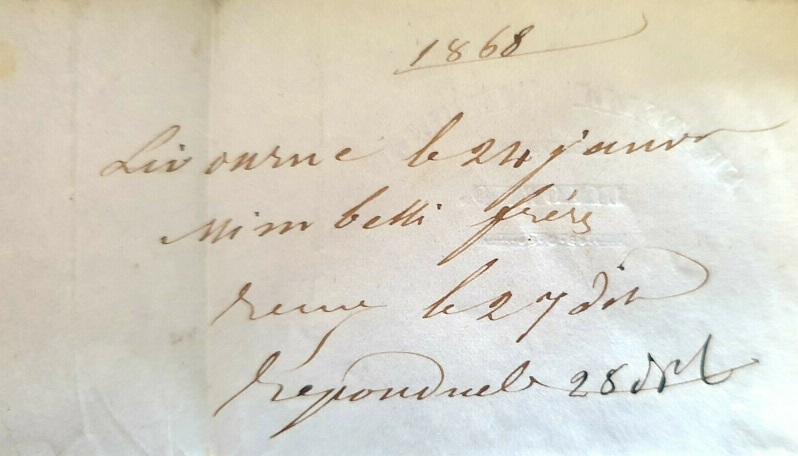 1868
Livourne le 24 janvr
Mimbelli frères
reçu le 27 dit
repondu le 28 dit